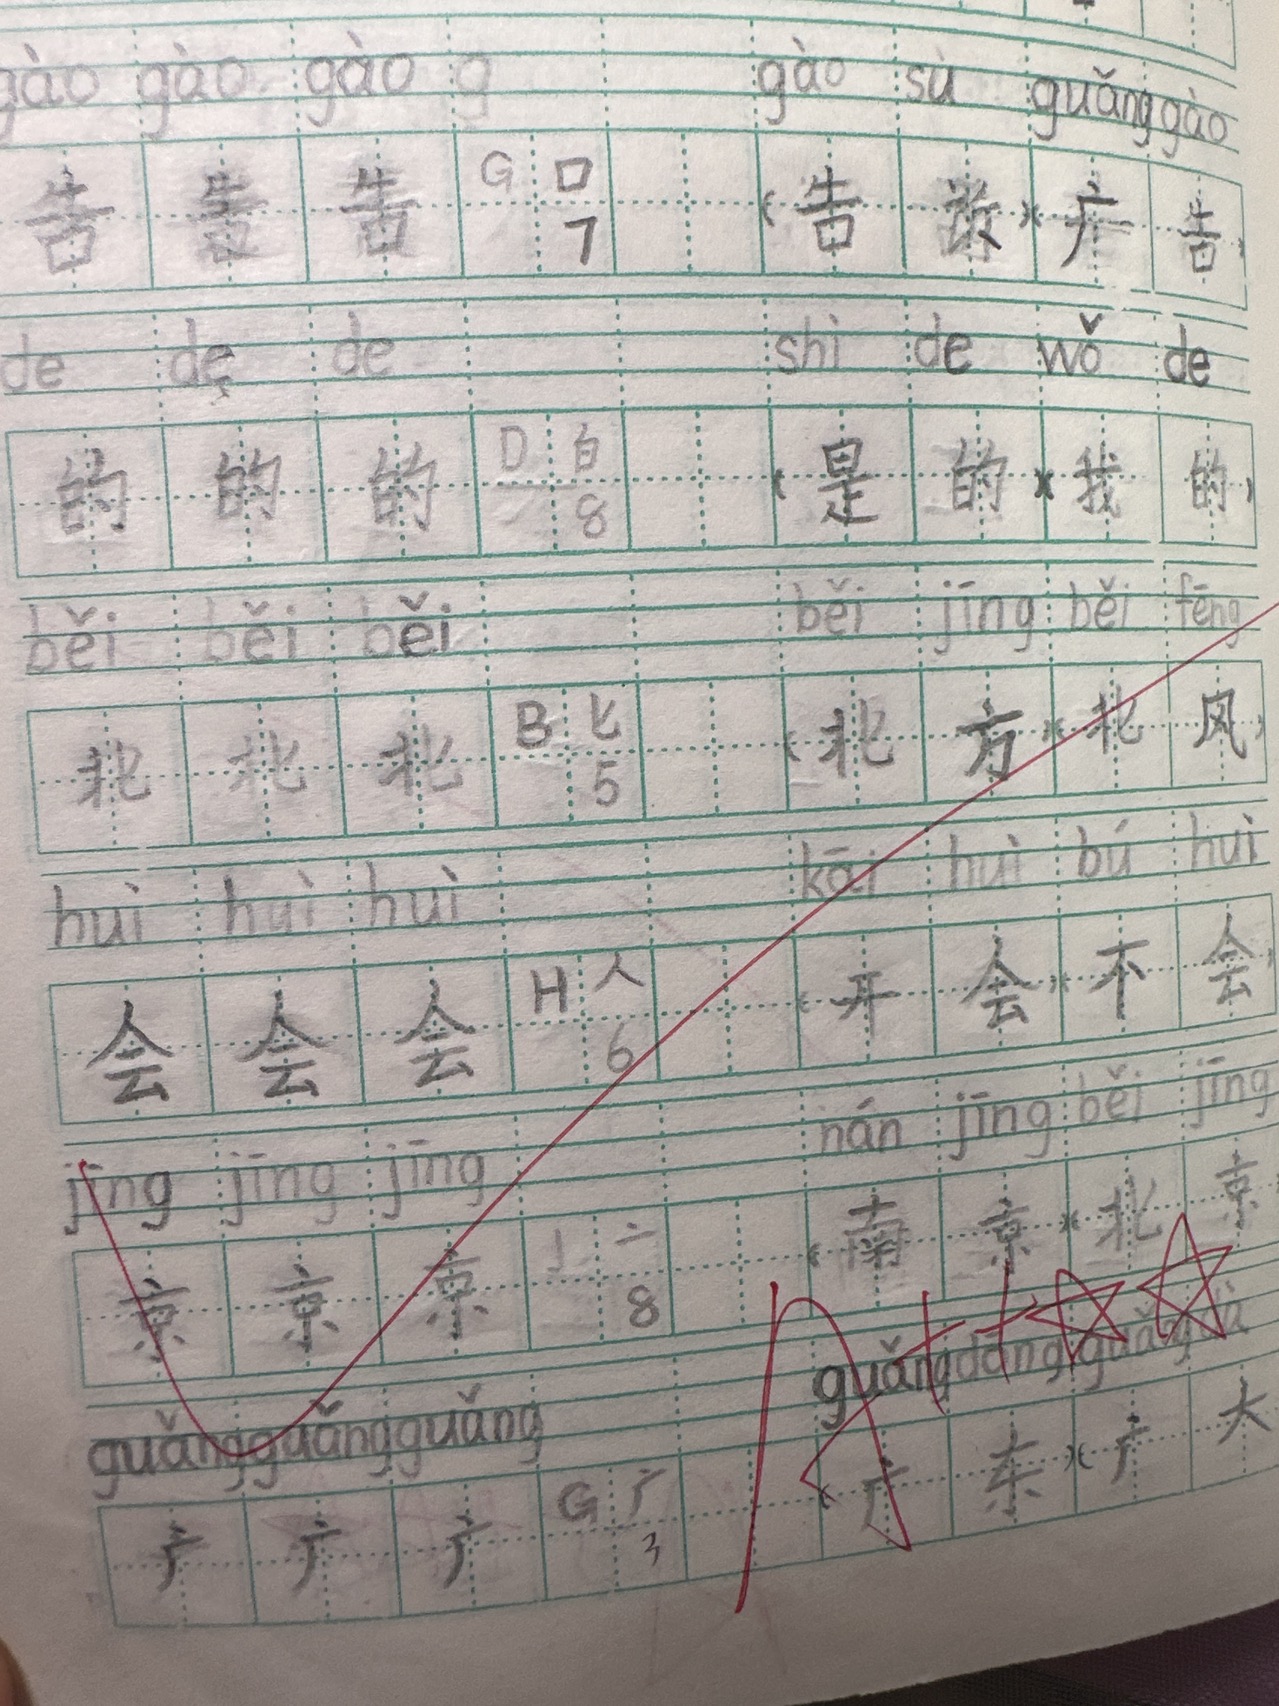 gào gào gào g gào sù guǎng gào
告 告 告 G 口 7 (告 诉)(广 告)
de de de shì de wǒ de
的 的 的 D 白 8 (是 的)(我 的)
běi běi běi běi jīng běi fēng
北 北 北 B 匕 5 (北 方)(北 风)
huì huì huì kāi huì bú huì
会 会 会 H 人 6 (开 会)(不 会)
jīng jīng jīng nán jīng běi jīng
京 京 京 J 亠 8 (南 京)(北 京)
guǎng guǎng guǎng guǎng dōng guǎng dà
广 广 广 G 广 3 (广 东)(广 大
A++